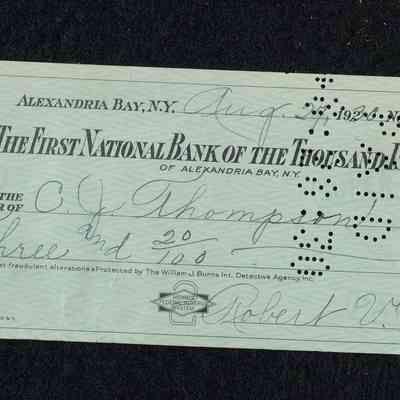 ALEXANDRIA BAY, N.Y. Aug. 192
THE FIRST NATIONAL BANK OF THE THOUSAND I
OF ALEXANDRIA BAY, N.Y.
THE
R OF C. J. Thompson
hree and 20/100
st fraudulent alterations & Protected by The William J. Burns Int. Detective Agency Inc.
MEMBER
FEDERAL RESERVE
SYSTEM
Robert V.